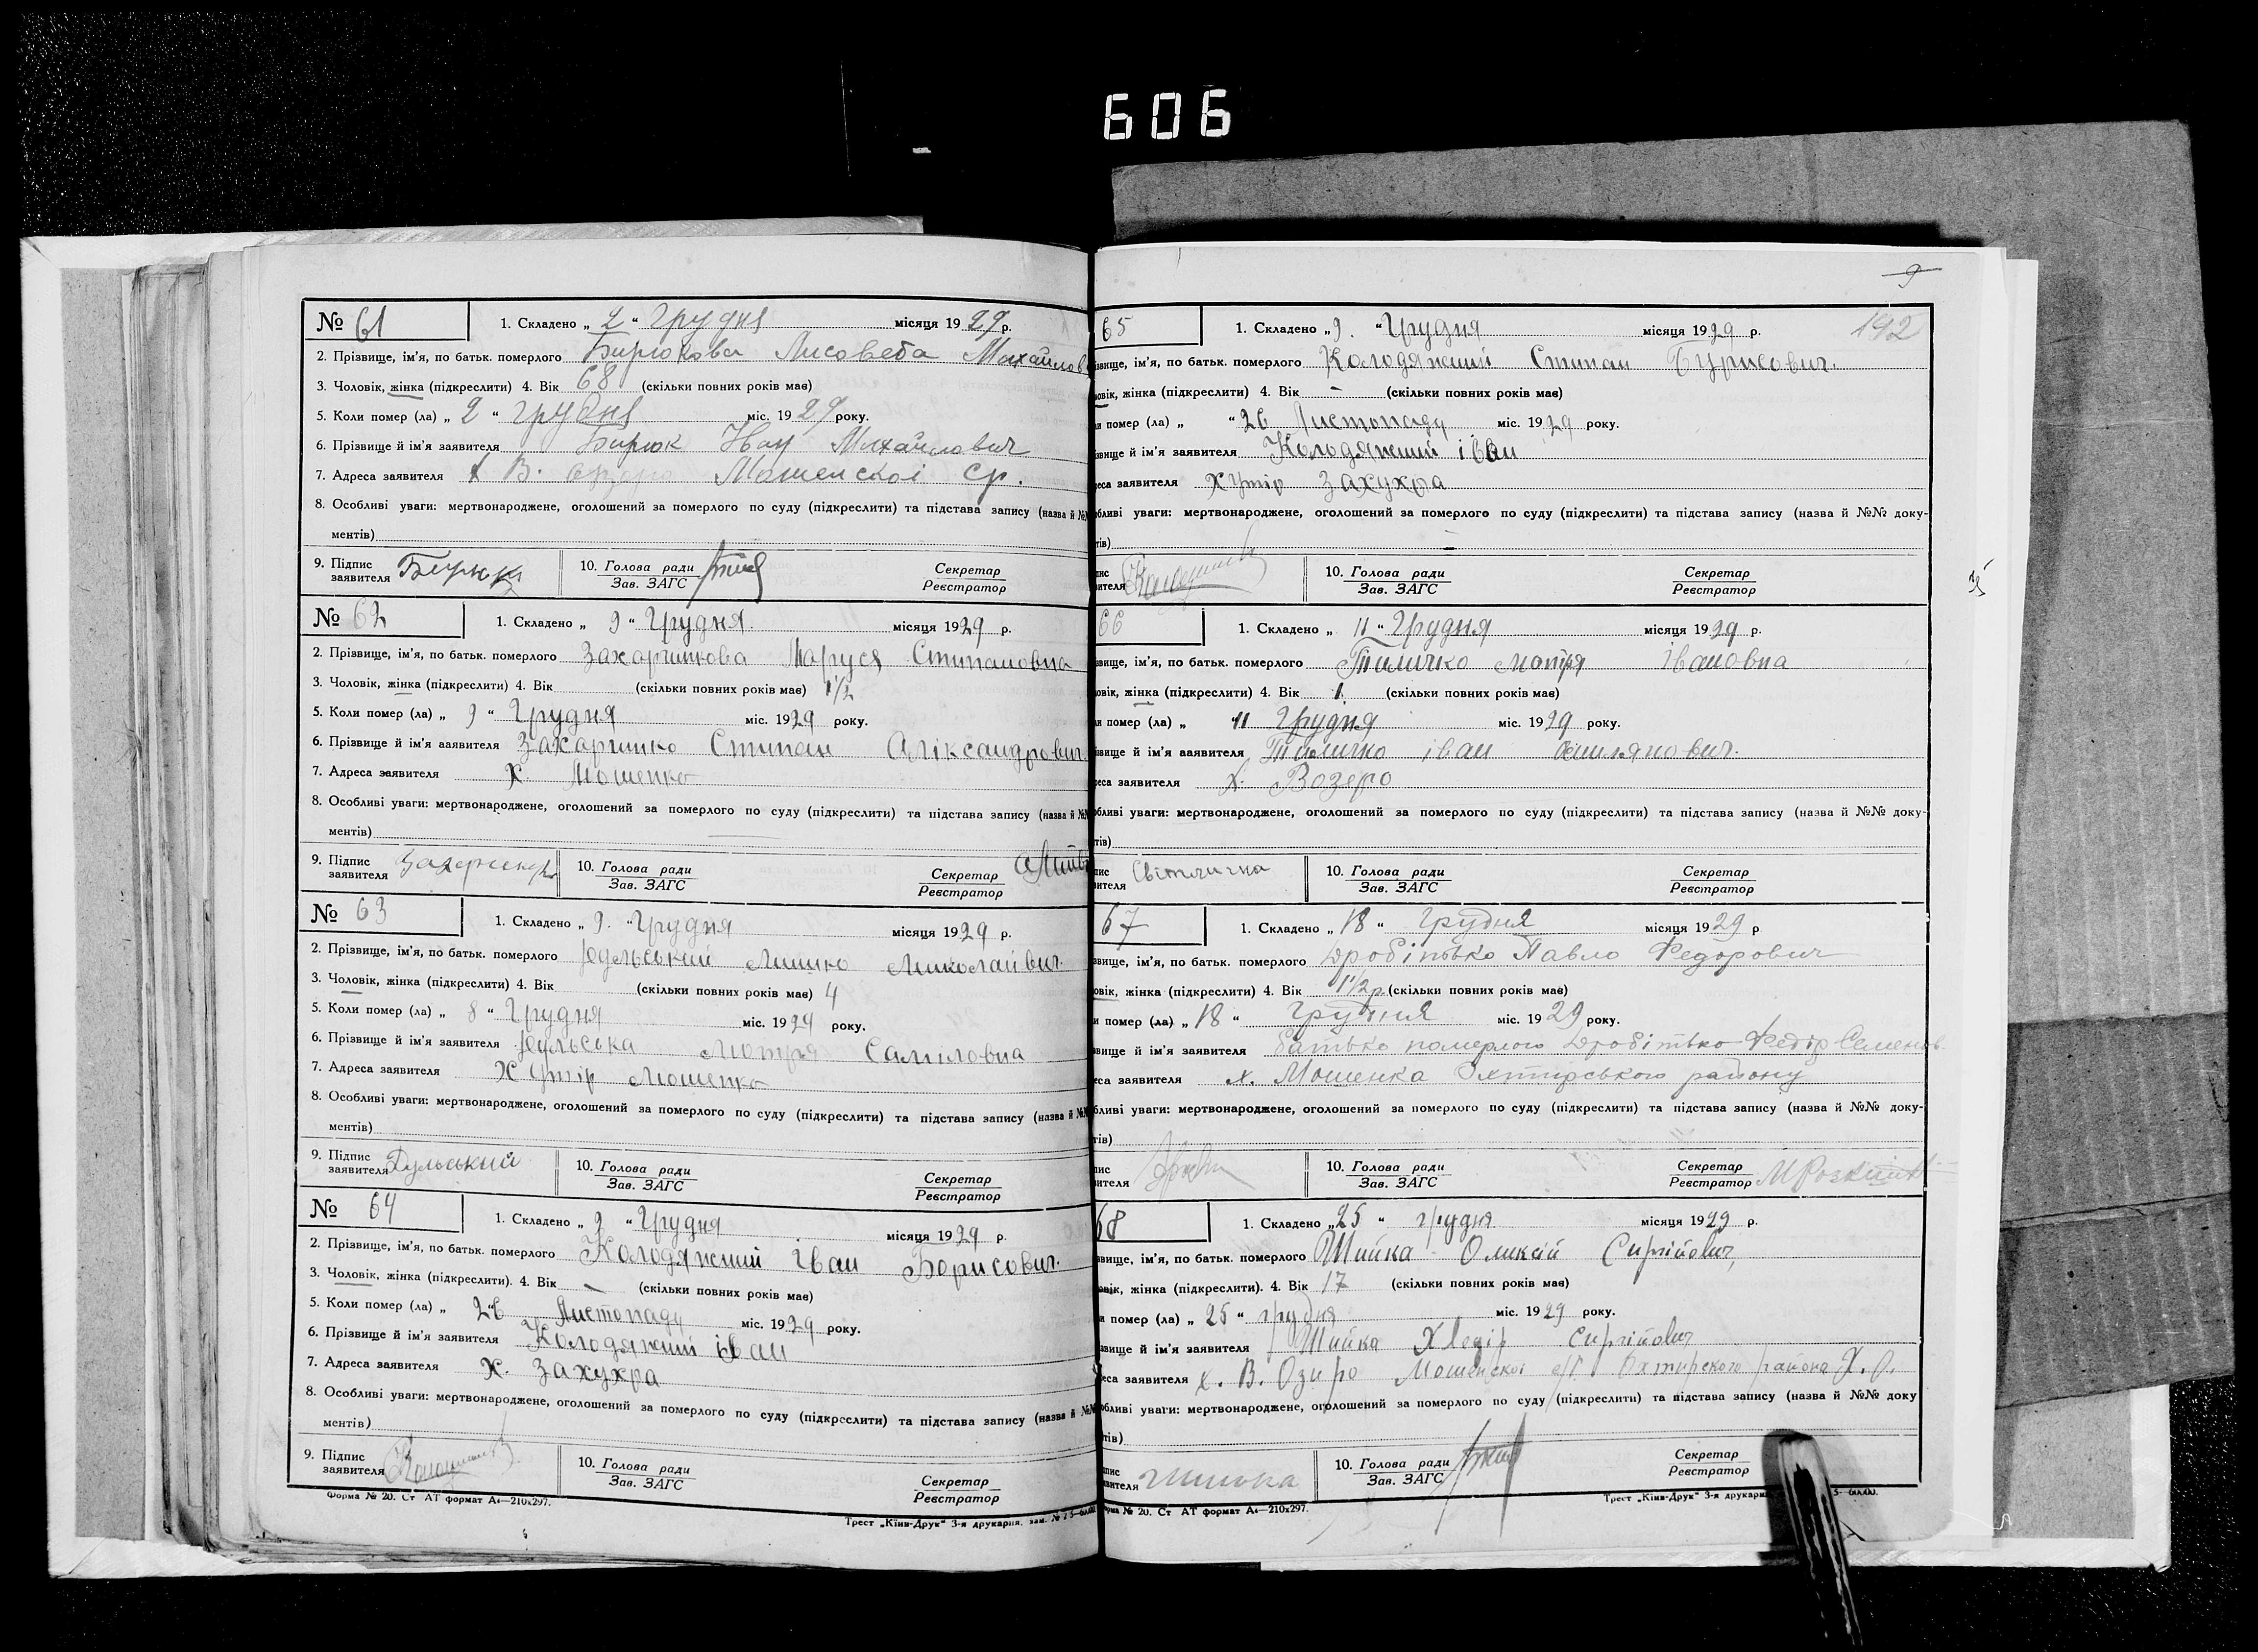 606
№ 61
1. Складено „ 2 “ Грудня місяця 1929 р.
2. Прізвище, ім'я, по батьк. померлого Бирюкова Лисовета Михайлов
3. Чоловік, жінка (підкреслити) 4. Вік 68 (скільки повних років має)
5. Коли помер (ла) „ 2 “ грудня міс. 1929 року.
6. Прізвище й ім'я заявителя Бирюк Иван Михайлович
7. Адреса заявителя х В. Мошенскоі ср.
8. Особливі уваги: мертвонароджене, оголошений за померлого по суду (підкреслити) та підстава запису (назва й №№
ментів)
9. Підпис заявителя Бирюк 10. Голова ради Зав. ЗАГС Секретар Реєстратор
№ 62
1. Складено „ 9 “ Грудня місяця 1929 р.
2. Прізвище, ім'я, по батьк. померлого Захарпикова Маруся Стипановна
3. Чоловік, жінка (підкреслити) 4. Вік (скільки повних років має) 1 1/2
5. Коли помер (ла) „ 9 “ Грудня міс. 1929 року.
6. Прізвище й ім'я заявителя Захарпико Стипан Аліксандрович.
7. Адреса заявителя Х Мошенко
8. Особливі уваги: мертвонароджене, оголошений за померлого по суду (підкреслити) та підстава запису (назва й №№
ментів)
9. Підпис заявителя 10. Голова ради Зав. ЗАГС Секретар Реєстратор
№ 63
1. Складено „ 9. “ Грудня місяця 1929 р.
2. Прізвище, ім'я, по батьк. померлого Мишко Миколайвич.
3. Чоловік, жінка (підкреслити) 4. Вік (скільки повних років має) 4
5. Коли помер (ла) „ 8 “ Грудня міс. 1929 року.
6. Прізвище й ім'я заявителя Мотря Саміловна
7. Адреса заявителя Хутір Мошенко
8. Особливі уваги: мертвонароджене, оголошений за померлого по суду (підкреслити) та підстава запису (назва й №№
ментів)
9. Підпис заявителя Дульський 10. Голова ради Зав. ЗАГС Секретар Реєстратор
№ 64
1. Складено „ 9 “ Грудня місяця 1929 р.
2. Прізвище, ім'я, по батьк. померлого Колодяжний Іван Борисович.
3. Чоловік, жінка (підкреслити). 4. Вік — (скільки повних років має)
5. Коли помер (ла) „ 26 Листопаду міс. 1929 року.
6. Прізвище й ім'я заявителя Колодяжний іван
7. Адреса заявителя х. Захухра
8. Особливі уваги: мертвонароджене, оголошений за померлого по суду (підкреслити) та підстава запису (назва й №№
ментів)
9. Підпис заявителя 10. Голова ради Зав. ЗАГС Секретар Реєстратор
Форма № 20. Ст АТ формат А4—210х297.
Трест „Київ-Друк“ 3-я друкарня, зам. №
9
65
1. Складено „9. “ Грудня місяця 1929 р. 192
звище, ім'я, по батьк. померлого Колодяжний Стипан Бурисович.
овік, жінка (підкреслити) 4. Вік — (скільки повних років має)
и помер (ла) „ “ 26 Листопаду міс. 1929 року.
звище й ім'я заявителя Колодяжний іван
еса заявителя хутір Захухра
обливі уваги: мертвонароджене, оголошений за померлого по суду (підкреслити) та підстава запису (назва й №№ доку-
тів)
пис вителя 10. Голова ради Зав. ЗАГС Секретар Реєстратор
66
1. Складено „ 11 “ Грудня місяця 1929 р.
звище, ім'я, по батьк. померлого Тиличко Мотря Івановна
овік, жінка (підкреслити) 4. Вік 1. (скільки повних років має)
и помер (ла) „ 11 Грудня міс. 1929 року.
звище й ім'я заявителя Тиличко іван Омилянович.
реса заявителя х. Возеро
обливі уваги: мертвонароджене, оголошений за померлого по суду (підкреслити) та підстава запису (назва й №№ доку-
тів)
пис вителя Світлична 10. Голова ради Зав. ЗАГС Секретар Реєстратор
67
1. Складено „ 18 “ Грудня місяця 1929 р
звище, ім'я, по батьк. померлого Дробітько Павло Федорович
овік, жінка (підкреслити) 4. Вік 1 1/2 р. (скільки повних років має)
и помер (ла) „ 18 “ Грудня міс. 1929 року.
звище й ім'я заявителя батько померлого Дробітько Федір Семенов
еса заявителя х. Мошенка Охтирського району
бливі уваги: мертвонароджене, оголошений за померлого по суду (підкреслити) та підстава запису (назва й №№ доку-
тів)
пис вителя 10. Голова ради Зав. ЗАГС Секретар Реєстратор
68
1. Складено „25 “ грудня місяця 1929 р.
звище, ім'я, по батьк. померлого Шийка Оликсій Сиргійович,
овік, жінка (підкреслити). 4. Вік 17 (скільки повних років має)
и помер (ла) „ 25 “ грудня міс. 1929 року.
звище й ім'я заявителя Шийка Хледір Сиргійович
еса заявителя х. В. Озиро Мошенскоі с/р Охтирского района Х. О.
обливі уваги: мертвонароджене, оголошений за померлого по суду (підкреслити) та підстава запису (назва й №№ доку
тів)
пис вителя Шийка 10. Голова ради Зав. ЗАГС Секретар Реєстратор
рма № 20. Ст АТ формат А4—210х297.
Трест „Київ-Друк“ 3-я друкарн